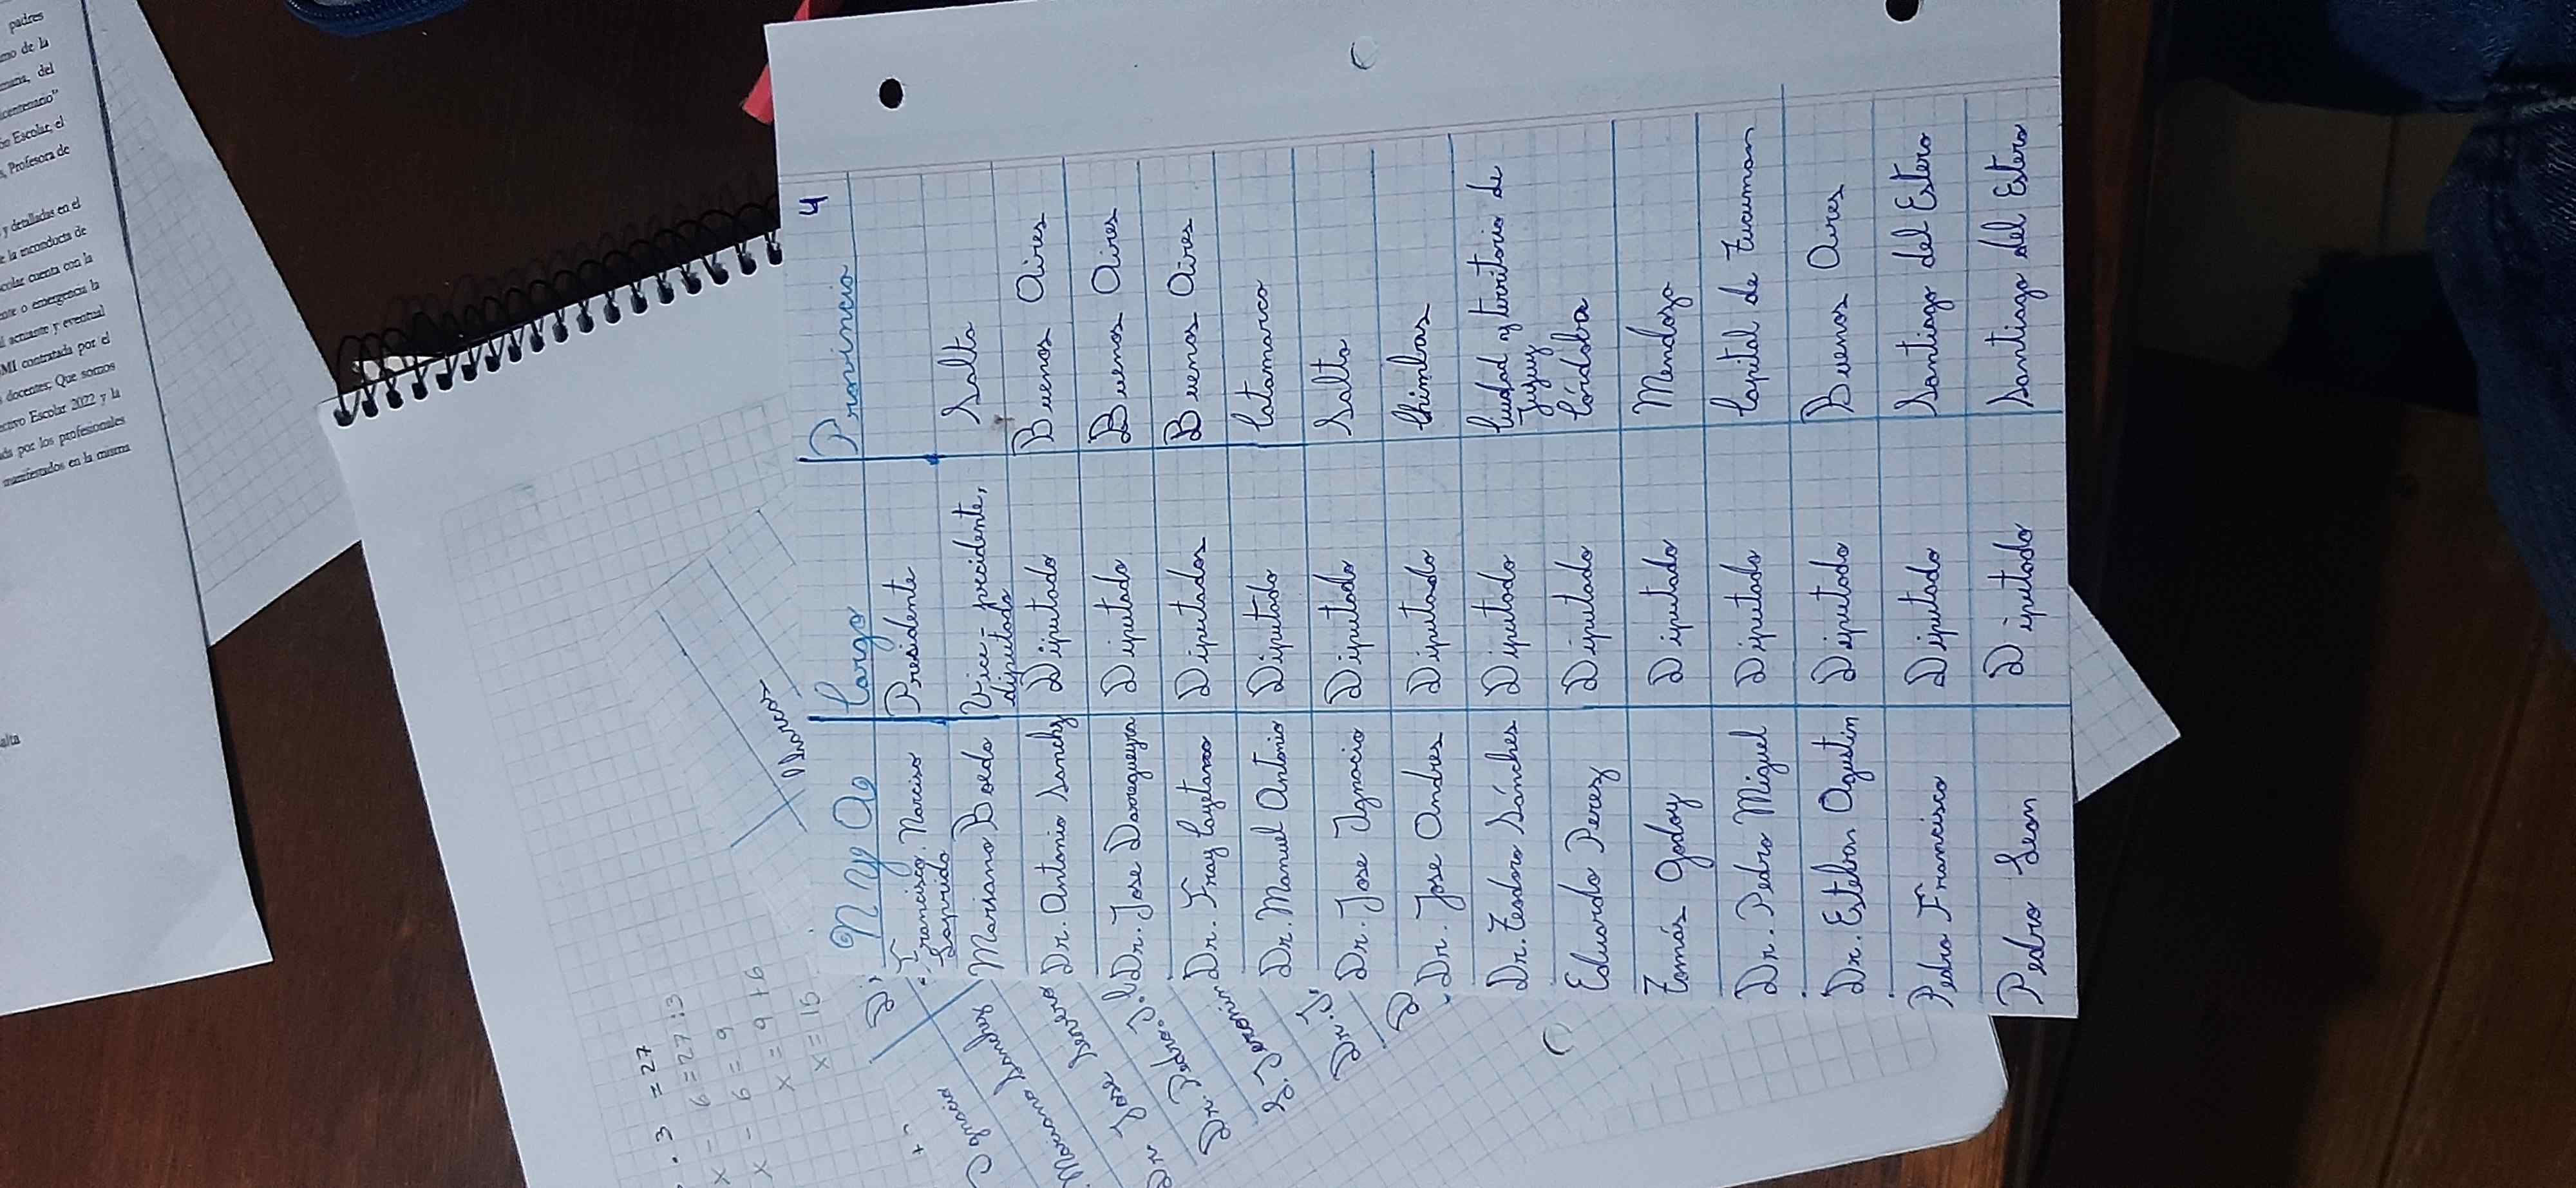 4
N y A Cargo Provincia
Francisco Narciso Laprida Presidente
Mariano Boedo Vice-presidente, diputado Salta
Dr. Antonio Sanchez Diputado Buenos Aires
Dr. Jose Darregueyra Diputado Buenos Aires
Dr. Fray Cayetano Diputados Buenos Aires
Dr. Manuel Antonio Diputado Catamarca
Dr. Jose Ignacio Diputado Salta
Dr. Jose Andres Diputado Chimbas
Dr. Teodoro Sánches Diputado Ciudad y territorio de Jujuy
Eduardo Perez Diputado Córdoba
Tomás Godoy Diputado Mendoza
Dr. Pedro Miguel Diputado Capital de Tucuman
Dr. Esteban Agustín Diputado Buenos Aires
Pedro Francisco Diputado Santiago del Estero
Pedro Leon Diputado Santiago del Estero
. 3 = 27
x - 6 = 27:3
x - 6 = 9
x = 9 + 6
x = 15
Ignacio
Mariano
Dr. Jose
Dr. Pedro
padres
mo de la
del
icentenario"
ón Escolar, el
, Profesora de
y detalladas en el
e la inconducta de
colar cuenta con la
ente o emergencia la
l actuante y eventual
MI contratada por el
docentes; Que somos
ectivo Escolar 2022 y la
ada por los profesionales
manifestados en la misma
alta